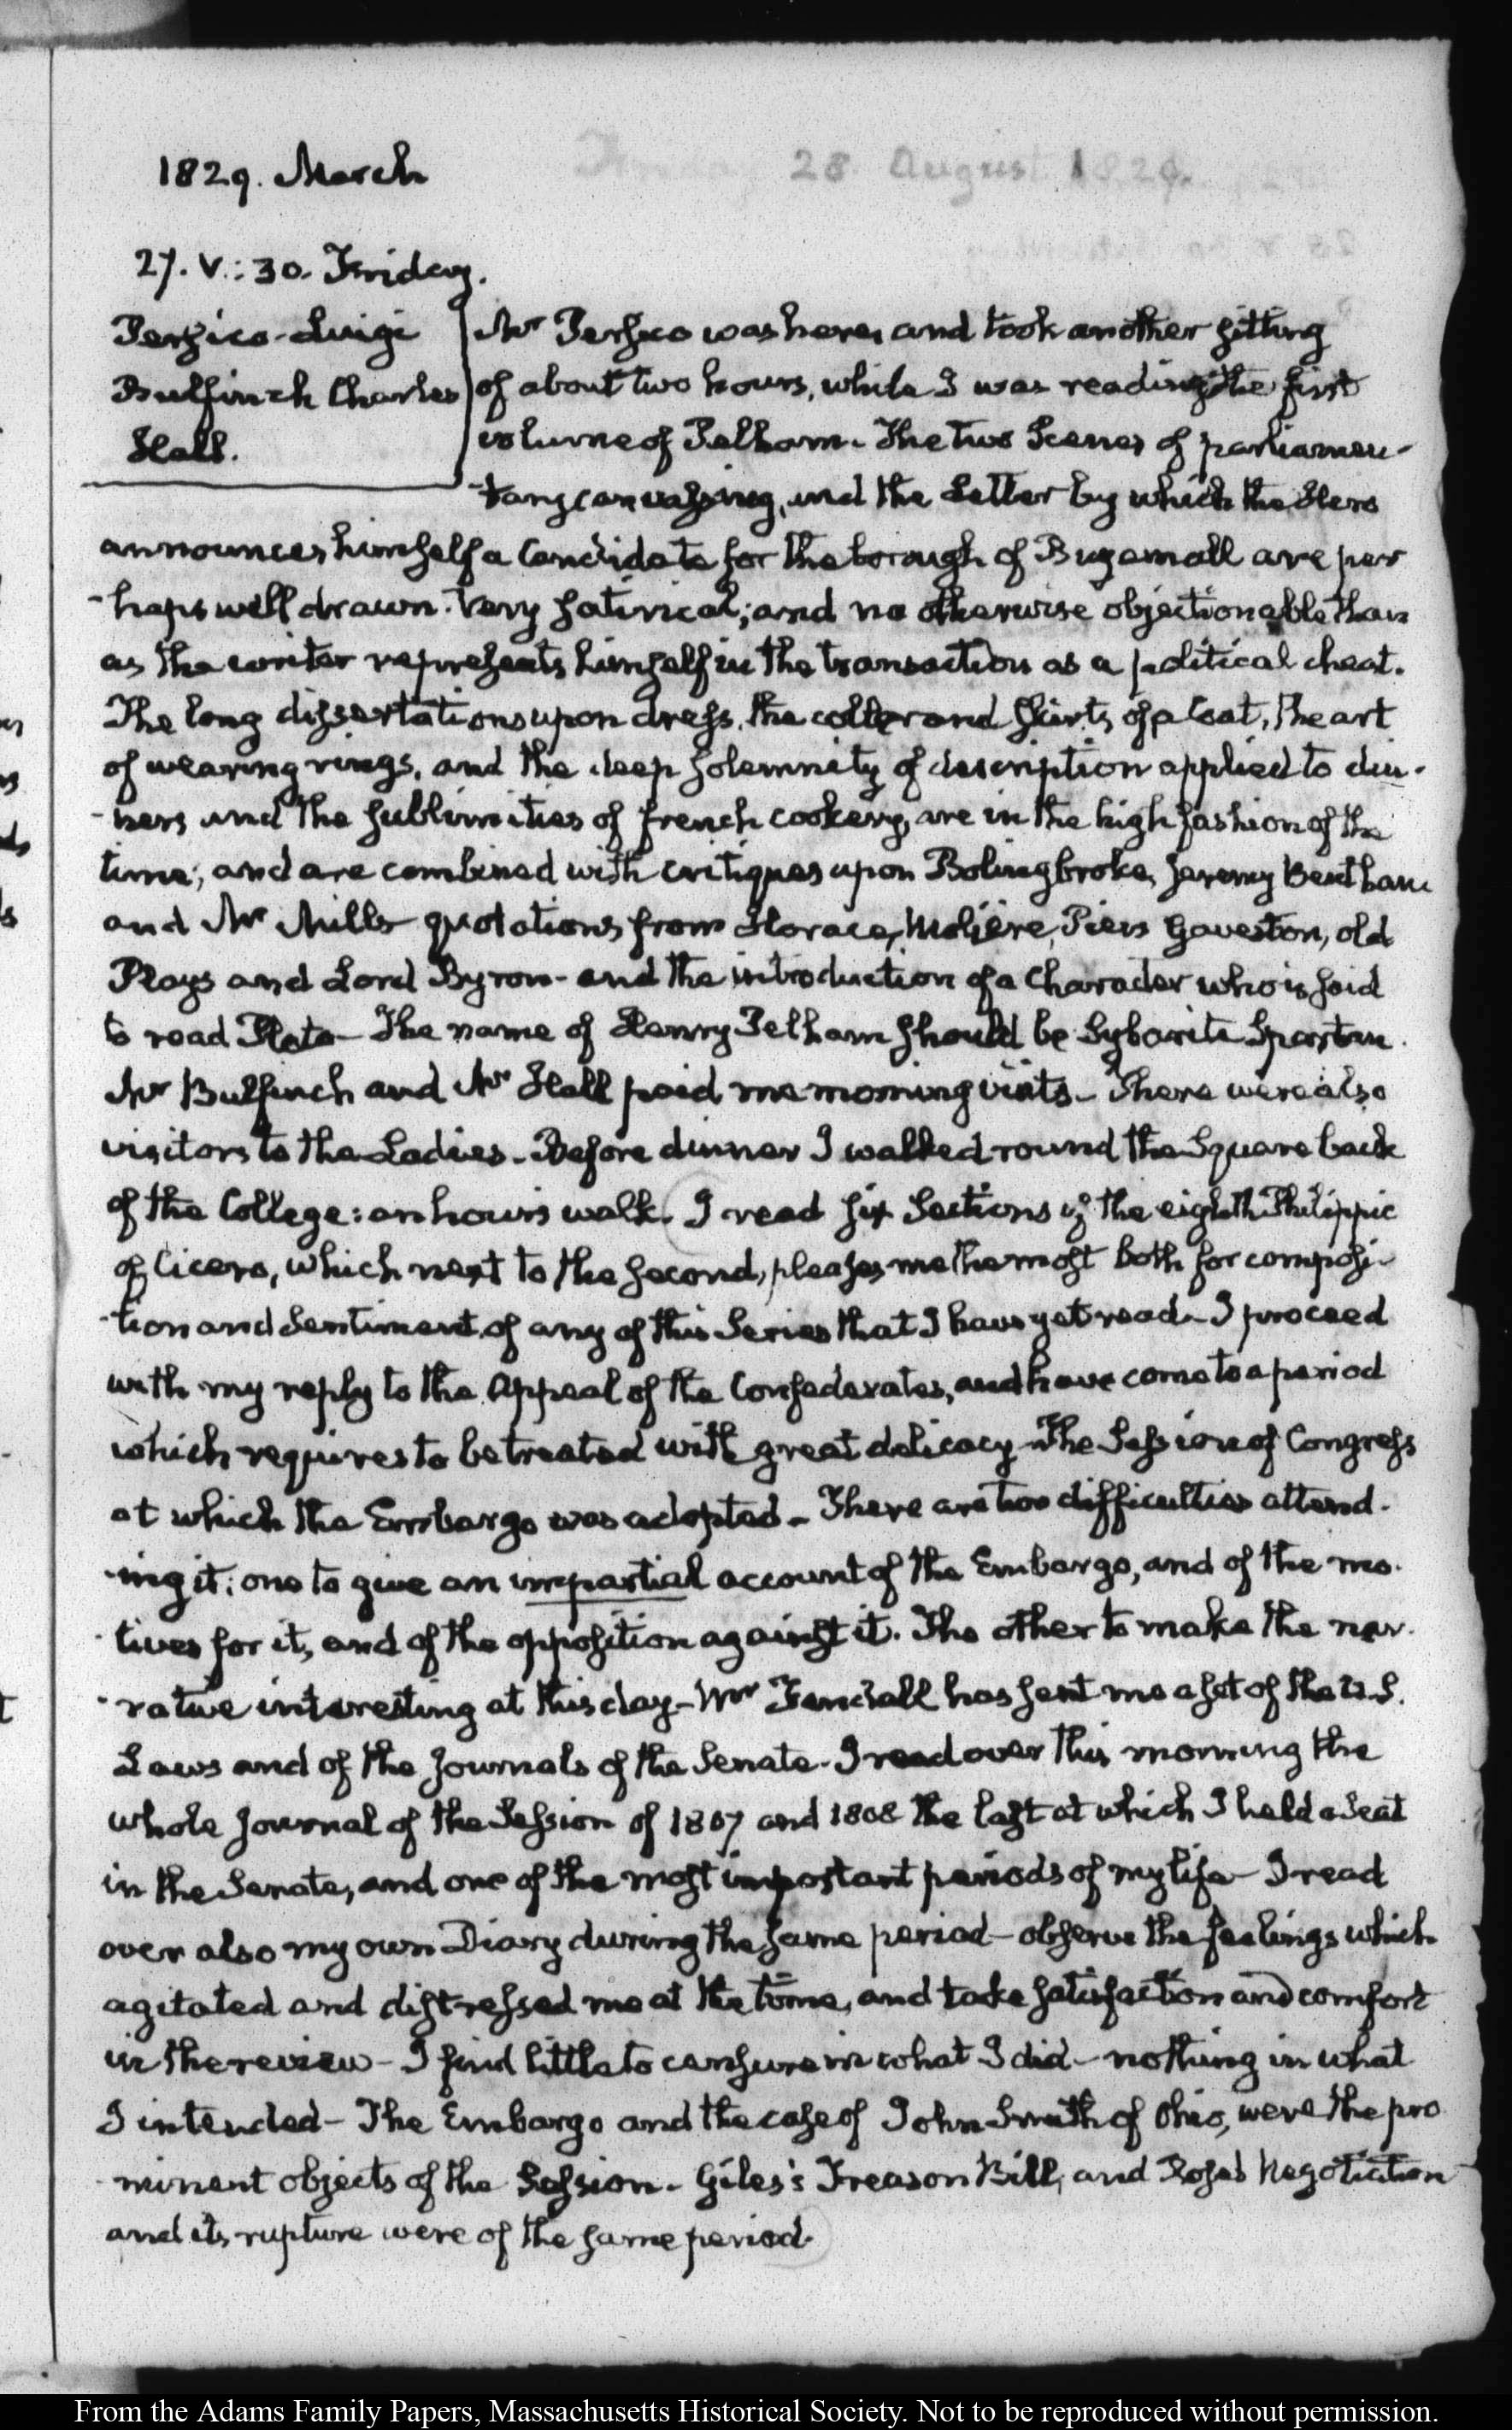 1829. March
28 August 1829.
27. V.:30. Friday.
Persico-Luigi
Bulfinch Charles
Hall.
Mr Persico was here, and took another sitting
of about two hours, while I was reading the first
volume of Pelham. The two Scenes of parliamen-
-tary canvassing, and the Letter by which the Hero
announces himself a Candidate for the borough of Buyemall are per
-haps well drawn. Very satirical; and no otherwise objectionable than
as the writer represents himself in the transaction as a political cheat.
The long dissertations upon dress, the collar and skirts of a Coat, the art
of wearing rings, and the deep solemnity of description applied to din-
-ners and the sublimities of french cookery, are in the high fashion of the
time; and are combined with critiques upon Bolingbroke, Jeremy Bentham
and Mr Mills- quotations from Horace, Moliere, Piers Gaveston, old
Plays and Lord Byron- and the introduction of a Character who is said
to read Plato- The name of Henry Pelham should be Sybarite Spartan.
Mr Bulfinch and Mr Hall paid me morning visits- There were also
visitors to the Ladies- Before dinner I walked round the Square back
of the College: an hour's walk. I read six Sections of the eighth Philippic
of Cicero, which next to the second, pleases me the most both for composi-
-tion and Sentiment of any of this Series that I have yet read- I proceed
with my reply to the Appeal of the Confederates, and have come to a period
which requires to be treated with great delicacy- The Session of Congress
at which the Embargo was adopted- There are two difficulties attend-
-ing it: one to give an impartial account of the Embargo, and of the mo-
-tives for it, and of the opposition against it. The other to make the nar-
-rative interesting at this day- Mr Fendall has sent me a set of the U.S.
Laws and of the Journals of the Senate- I read over this morning the
whole Journal of the Session of 1807 and 1808 the last at which I held a Seat
in the Senate, and one of the most important periods of my life- I read
over also my own Diary during the same period- observe the feelings which
agitated and distressed me at the time, and take satisfaction and comfort
in the review- I find little to censure in what I did- nothing in what
I intended- The Embargo and the case of John Smith of Ohio, were the pro
-minent objects of the Session. Giles's Treason Bill, and Rose's Negotiation
and its rupture were of the same period.
From the Adams Family Papers, Massachusetts Historical Society. Not to be reproduced without permission.